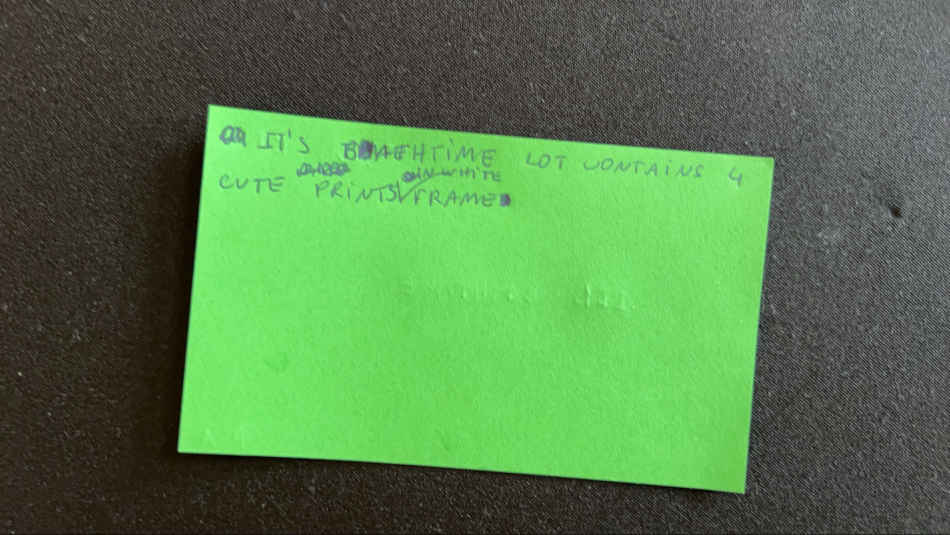 IT'S BATHTIME LOT CONTAINS 4
CUTE PRINTS IN WHITE FRAME